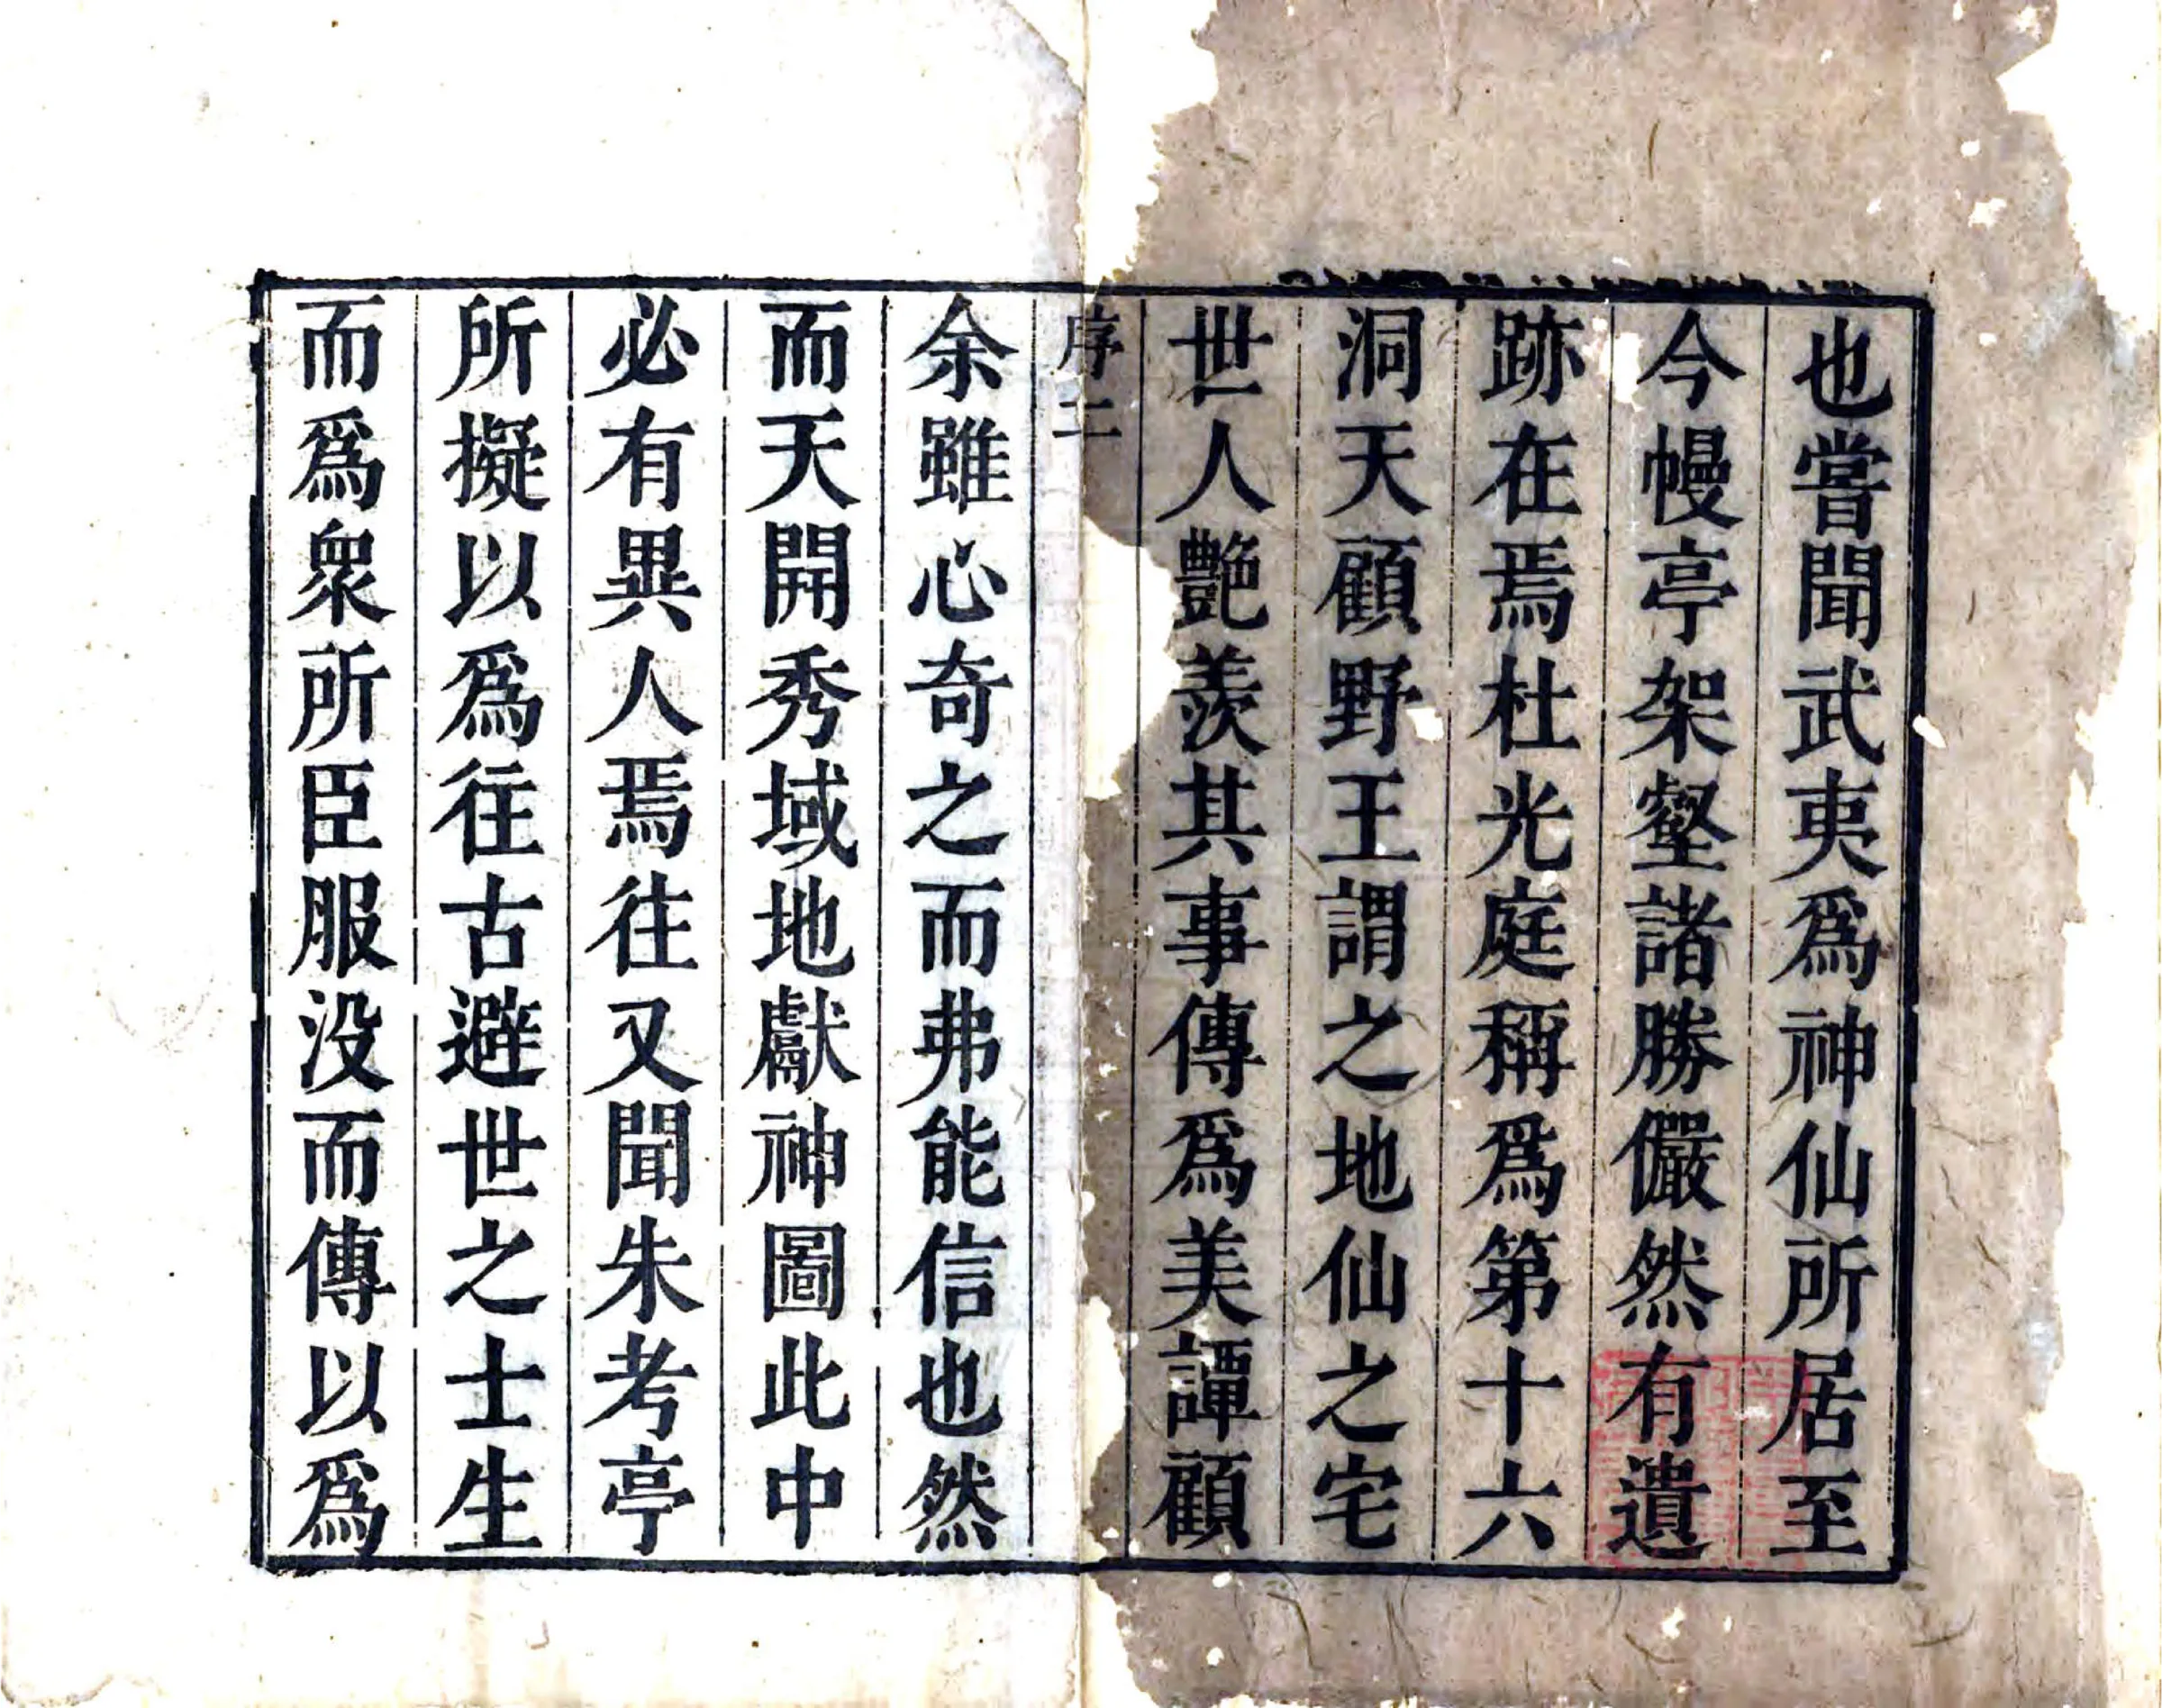 也嘗聞武夷爲神仙所居至
今幔亭架壑諸勝儼然有遺
跡在焉杜光庭稱爲第十六
洞天顧野王謂之地仙之宅
世人艷羨其事傳爲美譚顧
序二
余雖心奇之而弗能信也然
而天開秀域地獻神圖此中
必有異人焉往又聞朱考亭
所擬以爲往古避世之士生
而爲衆所臣服没而傳以爲